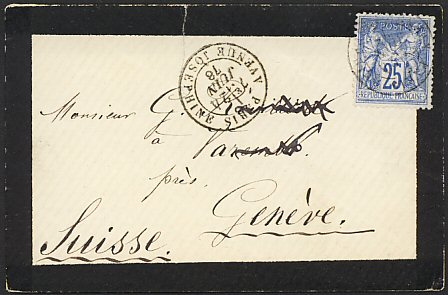 PARIS AVENUE JOSEPHINE
JUIN
78
POSTES
25
REPUBLIQUE FRANCAISE
Monsieur G.
à
près
Genève.
Suisse.